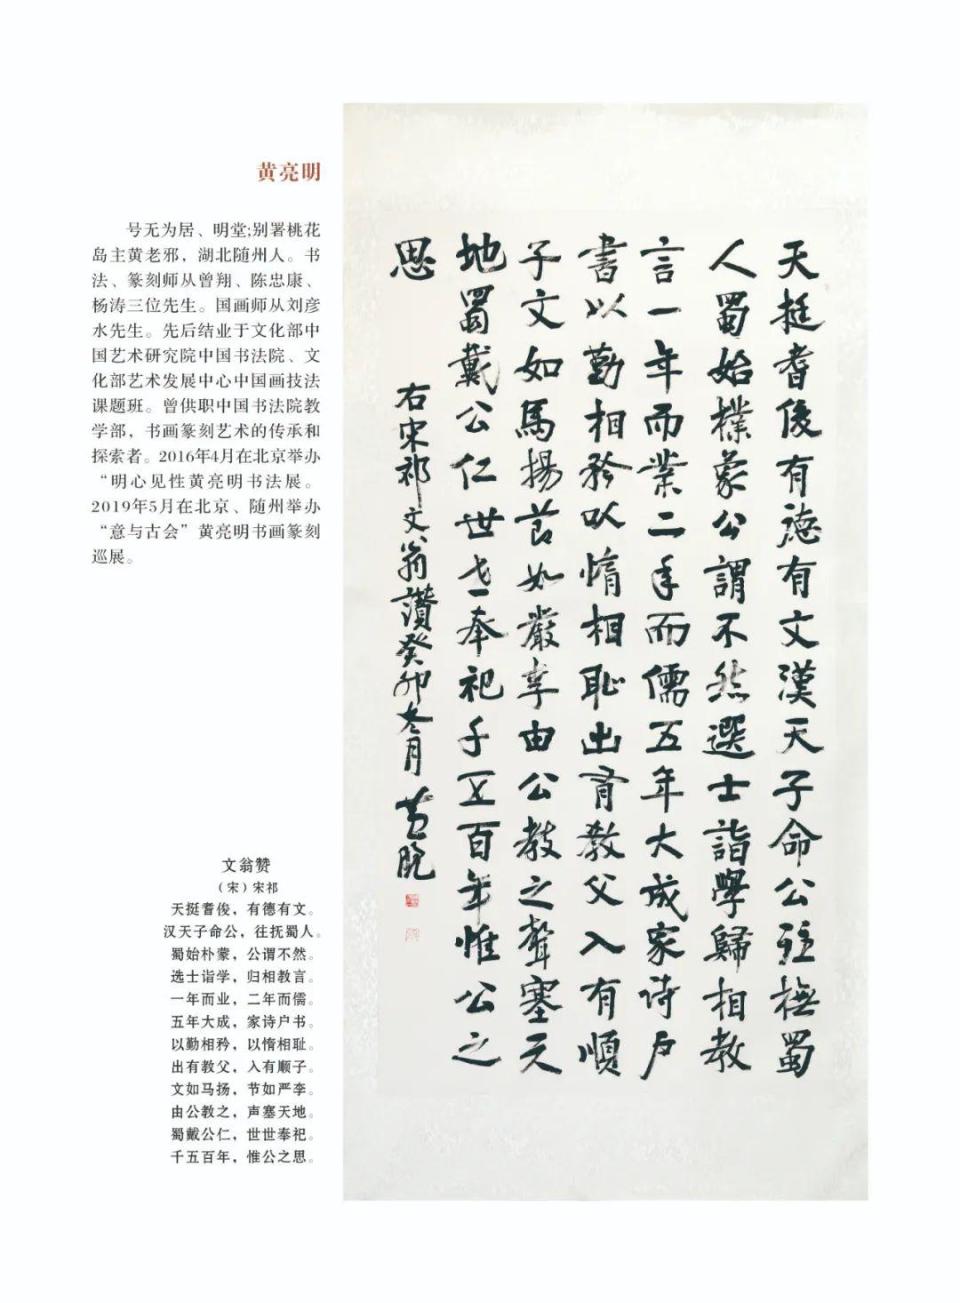 黄亮明
号无为居、明堂;别署桃花
岛主黄老邪，湖北随州人。书
法、篆刻师从曾翔、陈忠康、
杨涛三位先生。国画师从刘彦
水先生。先后结业于文化部中
国艺术研究院中国书法院、文
化部艺术发展中心中国画技法
课题班。曾供职中国书法院教
学部，书画篆刻艺术的传承和
探索者。2016年4月在北京举办
“明心见性黄亮明书法展。
2019年5月在北京、随州举办
“意与古会”黄亮明书画篆刻
巡展。
文翁赞
（宋）宋祁
天挺耆俊，有德有文。
汉天子命公，往抚蜀人。
蜀始朴蒙，公谓不然。
选士诣学，归相教言。
一年而业，二年而儒。
五年大成，家诗户书。
以勤相矜，以惰相耻。
出有教父，入有顺子。
文如马扬，节如严李。
由公教之，声塞天地。
蜀戴公仁，世世奉祀。
千五百年，惟公之思。
天挺耆俊有德有文漢天子命公往撫蜀
人蜀始樸蒙公謂不然選士詣學歸相教
言一年而業二年而儒五年大成家诗户
書以勤相矜以惰相恥出有教父入有順
子文如馬揚节如嚴李由公教之聲塞天
地蜀戴公仁世世奉祀千五百年惟公之
思
右宋祁文翁讃癸卯冬月黄